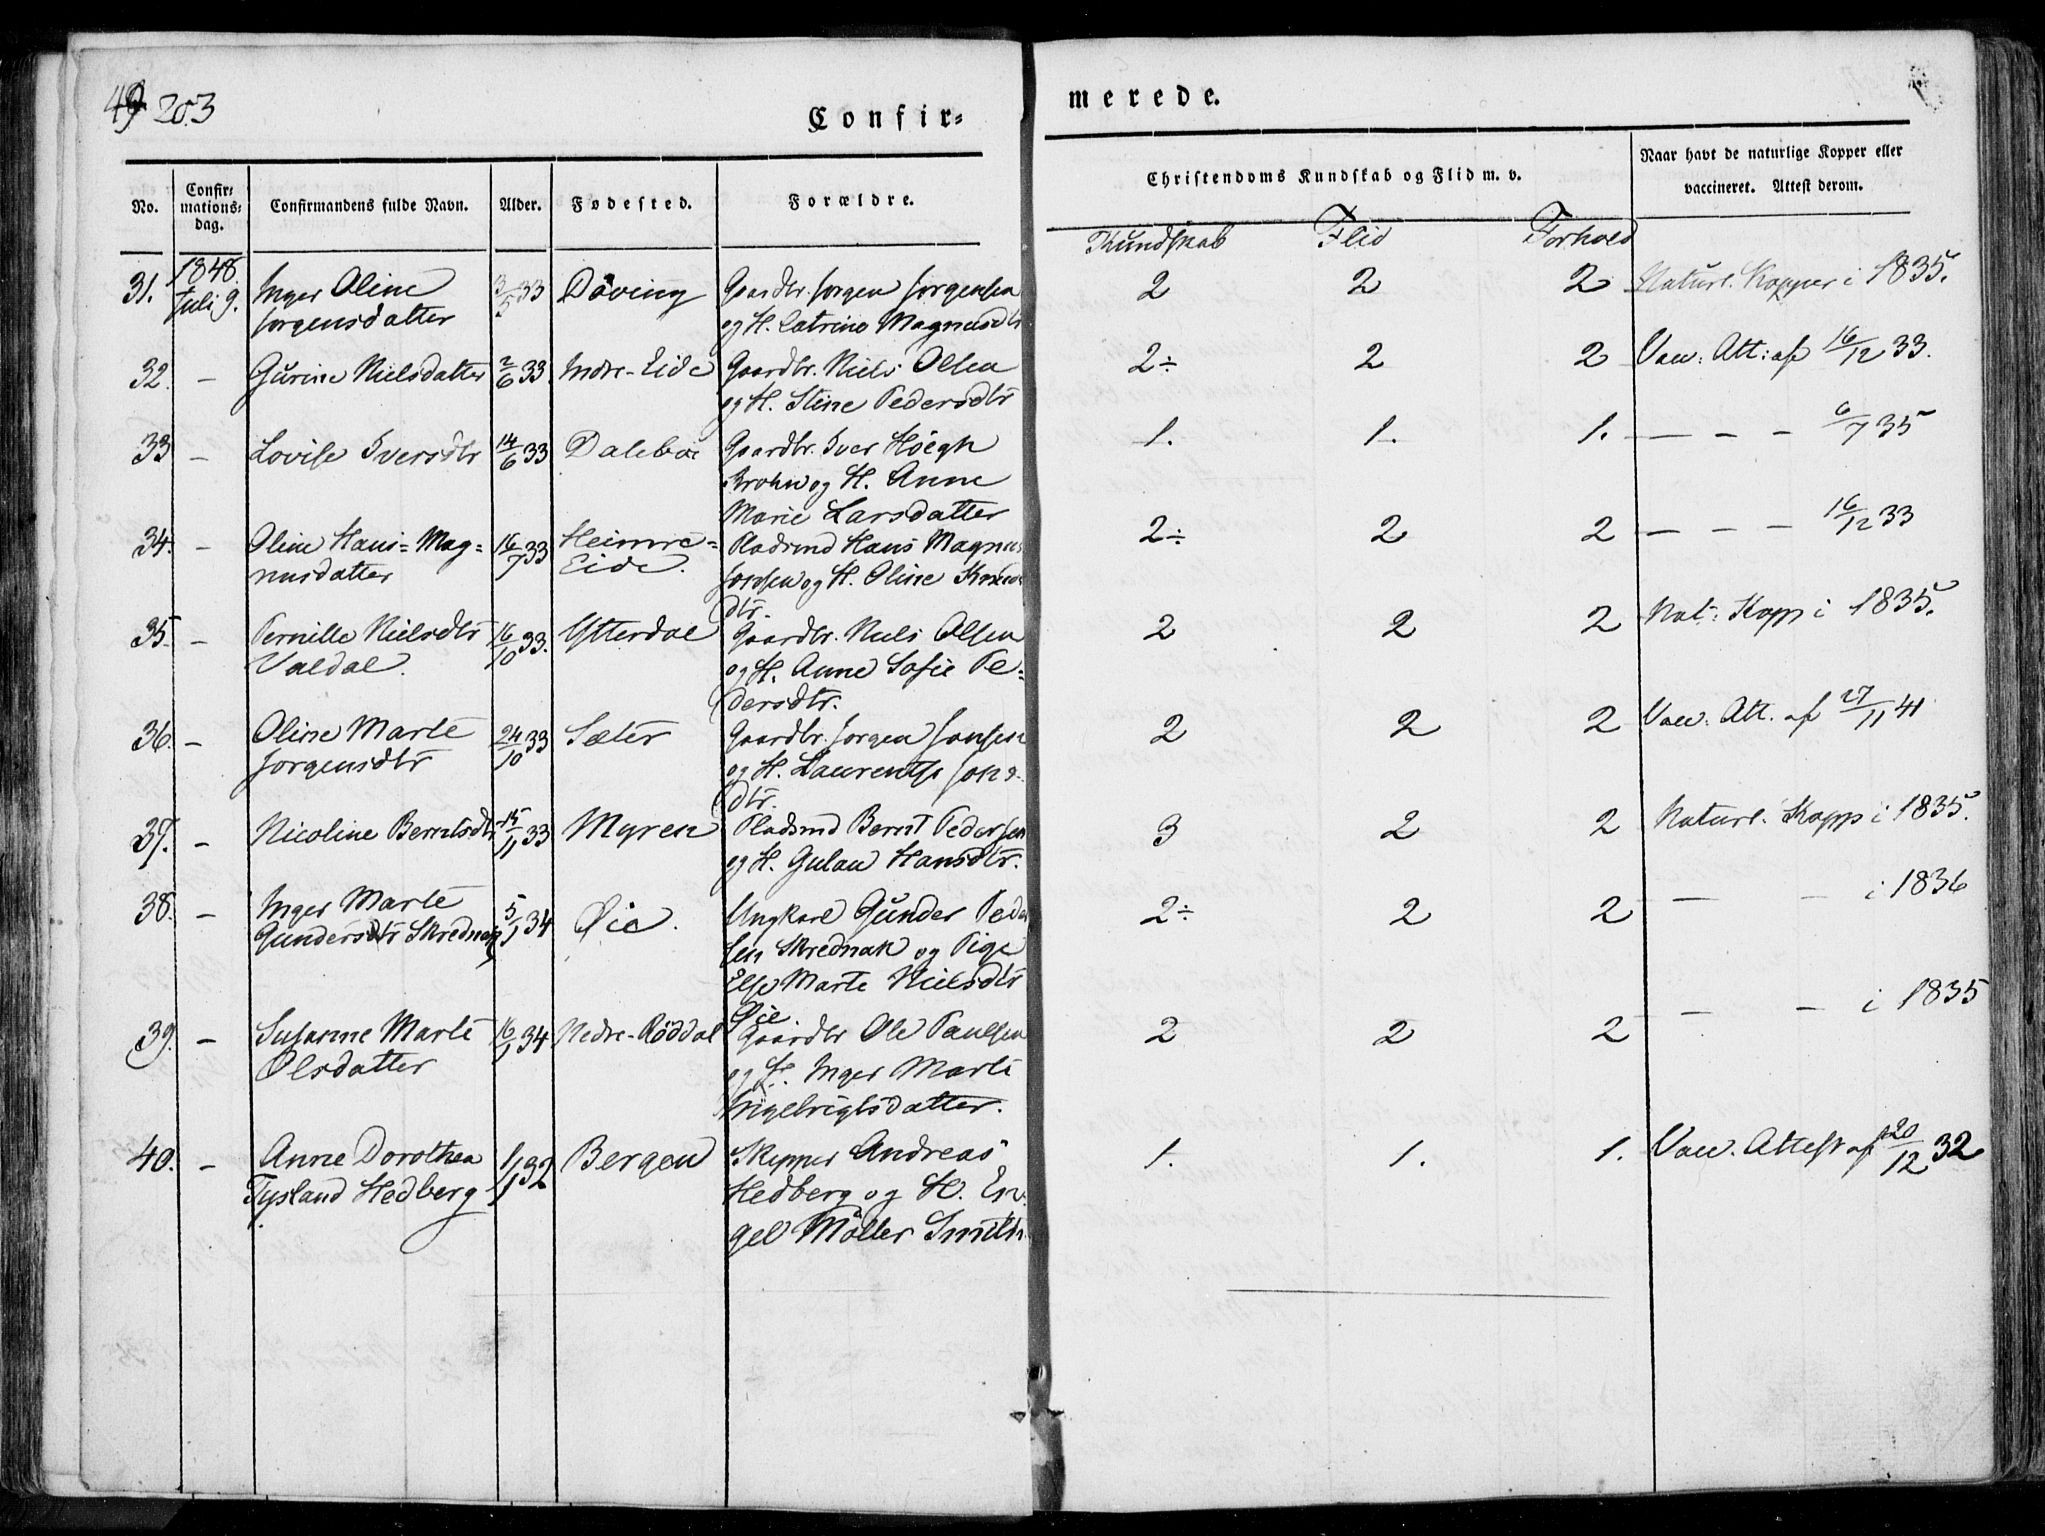 203
Confir-
merede.
No.
Confir-
mations-
dag.
Confirmandens fulde Navn.
Alder.
Fødested.
Forældre.
Christendoms Kundskab og Flid m. v.
Naar havt de naturlige Kopper eller
vaccineret. Attest derom.
Kundskab Flid Forhold
31. 1848. Juli 9. Inger Oline 3/5 33 Døving Gaardbr. Jørgen Jørgensen 2 2 2 Naturl. Kopper i 1835.
Jørgensdatter og H. Catrine Magnusdtr
32. - Gurine Nielsdatter 2/6 33. Indre-Eide Gaardbr. Niels Olsen 2÷ 2 2 Vacc: Att: af 16/12 33.
og H. Stine Pedersdtr
33 - Lovise Iversdtr 14/6 33 Dalebøe Gaardbr. Iver Høegh 1. 1. 1. - - - 6/7 35
Brohn og H. Anne
Marie Larsdatter
34. - Oline Hans-Mag- 16/7 33 Heimre- Pladsmd Hans Magnus 2÷ 2 2 - - - 16/12 33
nusdatter Eide. og H. Oline
dtr.
35. - Pernille Nielsdtr 16/10 33. Ytterdal Gaardbr. Niels Olsen 2 2 2 Nat: Kopp i 1835.
Valdal. og H. Anne Sofie Pe-
dersdtr.
36. - Oline Marte 24/10 33 Sæter Gaardbr. Jørgen Jonsen 2 2 2 Vacc: Att. af 27/11 41
Jørgensdtr og H. Laurentse Jons-
dtr.
37. - Nicoline Berntsdtr 15/11 33 Myren Pladsmd Bernt Pedersen 3 2 2 Naturl. Kopp i 1835.
og H. Gulau Hansdtr.
38. - Inger Marte 5/1 34 Øie. Ungkarl Gunder Peder 2÷ 2 2 - - i 1836
Gundersdtr Skrednak sen Skrednak og Pige
Else Marte Nielsdtr
Øie
39. - Susanne Marte 16/1 34. Nedre-Røddal Gaardbr Ole Paulsen 2 2 2 - - i 1835
Olsdatter og H. Inger Marte
Ingebrigtsdatter.
40. - Anne Dorothea 1/1 32 Bergen Skipper Andreas 1. 1. 1. Vacc. Attest af 20/12 32
Tysland Hedberg Hedberg og H. En-
gel Møller Smith